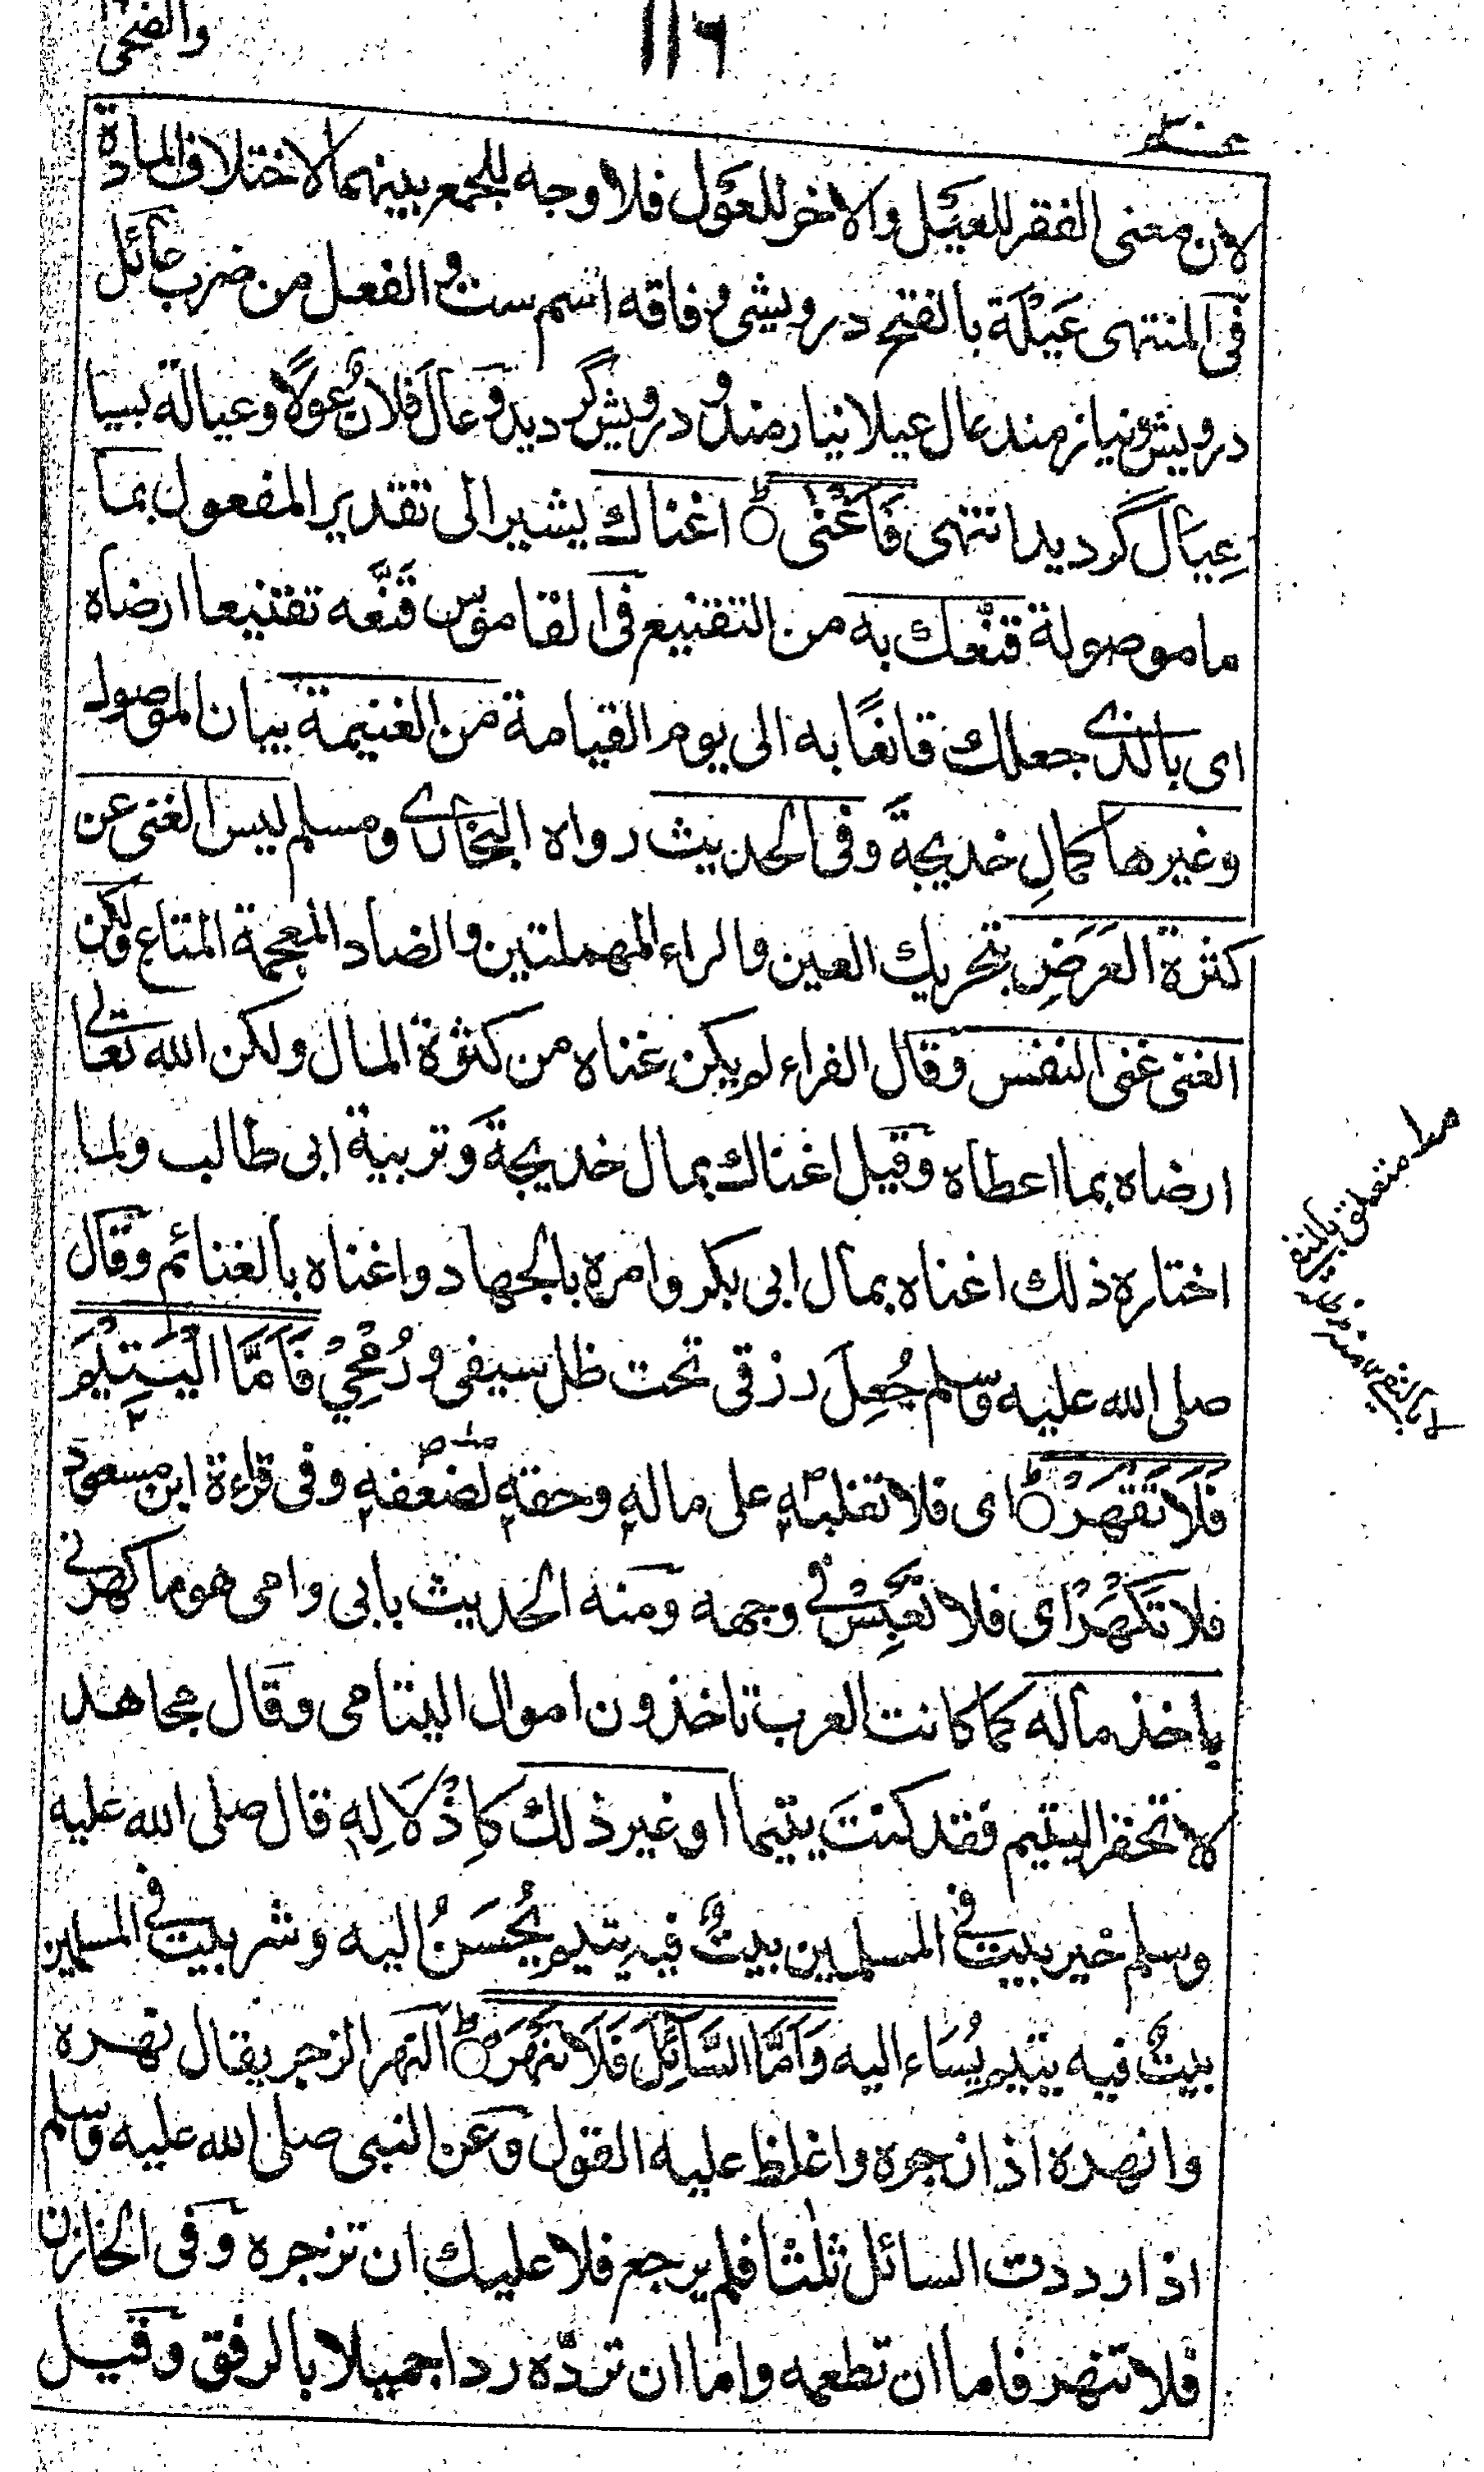 والضحى
١١٦
عــم
لان معنى الفقر للعيل والاخر للعول فلا وجه للجمع بينهما لاختلاف المادة
فى المنتهى عَيْلَة بالفتح درويشى وفاقه اسم ست والفعل من ضرب عائل
درويش ونيازمند عال عيلا نيازمند ودرويش گرديد وعال فلانٌ عولاً وعيالة بسيا
عِيال گرديد انتهى فَاَغْنٰى اغناك يشير الى تقدير المفعول بما
ما موصولة قنّعك به من التقنيع فى القاموس قَنَّعه تقنيعا ارضاه
اى بالذي جعلك قانعًا به الى يوم القيامة من الغنيمة بيان الموصول
وغيرها كمالِ خديجةَ وفى الحديث رواه البخاري ومسلم ليس الغنى عن
كثرة العَرَضِ بتحريك العين والراء المهملتين والضاد المعجمة المتاع ولكن
الغنى غنى النفس وقال الفراء لم يكن غناه من كثرة المال ولكن الله تعالى
ارضاه بما اعطاه وقيل اغناك بمال خديجة وتربية ابى طالب ولما
اختاره ذلك اغناه بمال ابى بكر وامره بالجهاد واغناه بالغنائم وقال
صلى الله عليه وسلم جُعِلَ رزقى تحت ظل سيفى ورُمْحِيْ فَاَمَّا الْيَتِيْمَ
فَلَا تَقْهَرْ اى فلا تغلبه على ماله وحقه لضعفه وفى قراءة ابن مسعود
فلا تَكْهَرْ اى فلا تعبِسْ في وجهه ومنه الحديث بابى وامى هو ما كهرنى
ياخذ ماله كما كانت العرب تاخذون اموال اليتامى وقال مجاهد
لا تحقر اليتيم فقد كنتَ يتيما او غير ذلك كاِذْلَالِهِ قال صلى الله عليه
وسلم خير بيت في المسلمين بيتٌ فيه يتيم يُحْسَنُ اليه وشر بيت في المسلمين
بيتٌ فيه يتيم يُسَاء اليه وَاَمَّا السَّآئِلَ فَلَا تَنْهَرْ النهر الزجر يقال نهره
وانهره اذا زجره واغلظ عليه القول وعن النبى صلى الله عليه وسلم
اذا رددت السائل ثلثا فلم يرجع فلا عليك ان تزجره وفى الخازن
فلا تنهر فاما ان تطعمه واما ان تردّه ردا جميلا بالرفق وقيل